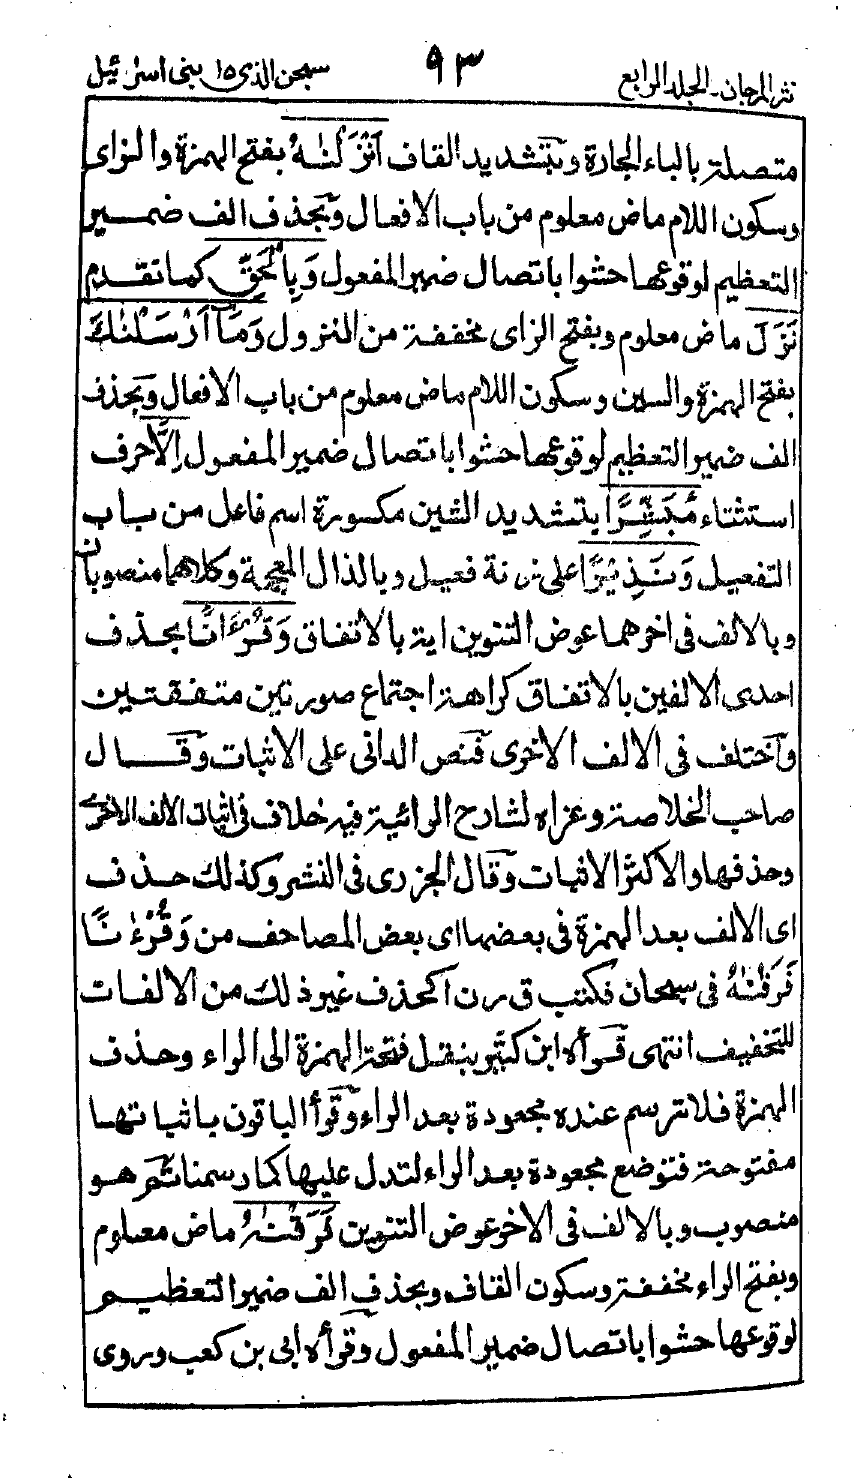 نثر المرجان ـ الجلد الرابع ٩٣ سبحن الذی ١٥ بنی اسرٰئیل
متصلة بالباء الجارة وبتشدید القاف اَنْزَلْنٰهُ بفتح الهمزة والزای
وسکون اللام ماض معلوم من باب الافعال وبحذف الف ضمیر
التعظیم لوقوعها حشوا باتصال ضمیر المفعول وَبِالْحَقِّ کما تقدم
نَزَلَ ماض معلوم وبفتح الزای مخففة من النزول وَمَآ اَرْسَلْنٰكَ
بفتح الهمزة والسین وسکون اللام ماض معلوم من باب الافعال وبحذف
الف ضمیر التعظیم لوقوعها حشوا باتصال ضمیر المفعول اِلَّا حرف
استثناء مُبَشِّرًا بتشدید الشین مکسورة اسم فاعل من باب
التفعیل وَنَذِیْرًا علی زنة فعیل وبالذال المعجمة وکلاهما منصوبان
وبالالف فی اخرهما عوض التنوین ایة بالاتفاق وَقُرْءَانًا بحذف
احدی الالفین بالاتفاق کراهة اجتماع صورتین متفقتین
واختلف فی الالف الاخری فنص الدانی علی الاثبات وقال
صاحب الخلاصة وعزاه لشارح الرائیة فیه خلاف فی اثبات الالف الاخری
وحذفها والاکثر الاثبات وقال الجزری فی النشر وکذلك حذف
ای الالف بعد الهمزة فی بعضها ای بعض المصاحف من وَقُرْءٰنًا
فَرَقْنٰهُ فی سبحان فکتب ق رن ا کحذف غیر ذلك من الالفات
للتخفیف انتهی قرأه ابن کثیر بنقل فتحة الهمزة الی الراء وحذف
الهمزة فلا ترسم عنده مجعودة بعد الراء وقرأ الباقون باثباتها
مفتوحة فتوضع مجعودة بعد الراء لتدل علیها کما رسمنا ثم هو
منصوب وبالالف فی الاخر عوض التنوین فَرَقْنٰهُ ماض معلوم
وبفتح الراء مخففة وسکون القاف وبحذف الف ضمیر التعظیم
لوقوعها حشوا باتصال ضمیر المفعول وقرأه ابی بن کعب وروی